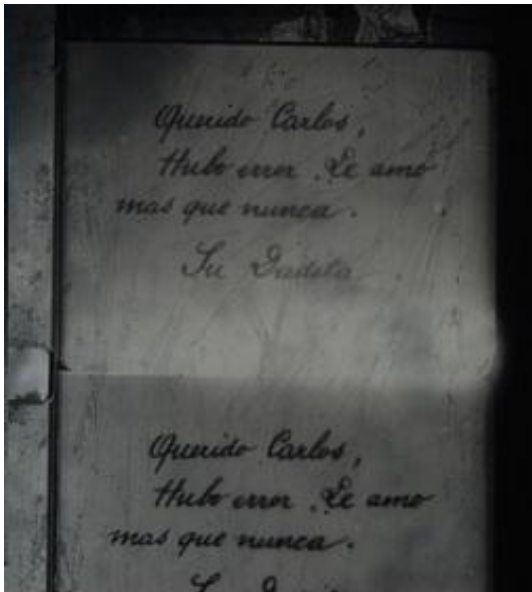 Querido Carlos,
Hubo error. Le amo
mas que nunca.
Su Dadita
Querido Carlos,
Hubo error. Le amo
mas que nunca.
Su